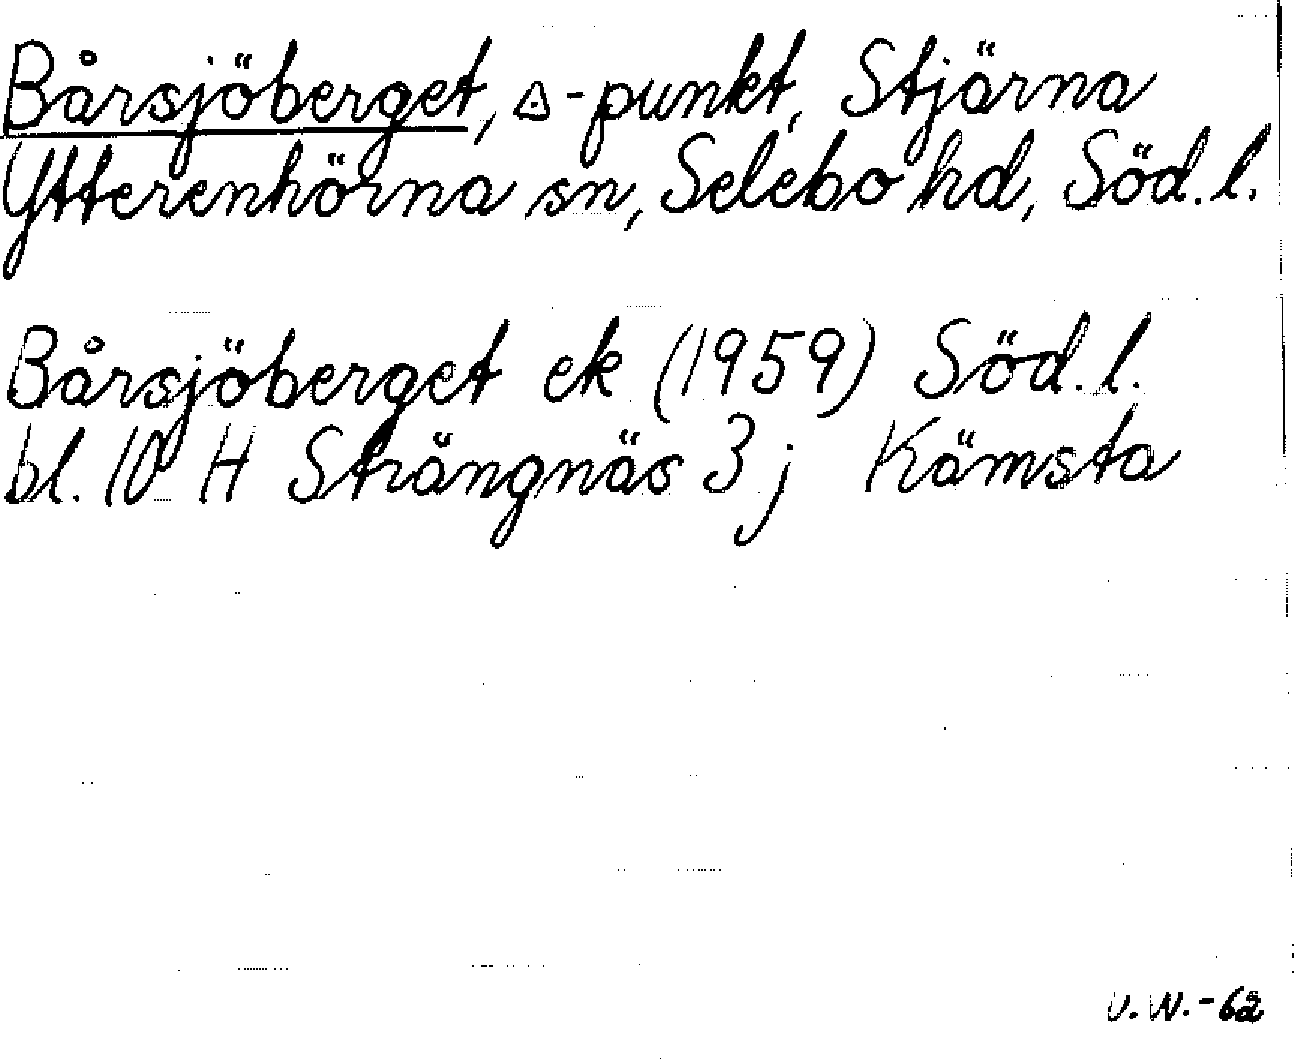 Bårsjöberget, △-punkt, Stjärna
Ytterenhörna sn, Selebo hd, Söd. l.
Bårsjöberget ek (1959) Söd. l.
bl. 10 H Strängnäs 3 j Kämsta
V. W. -62